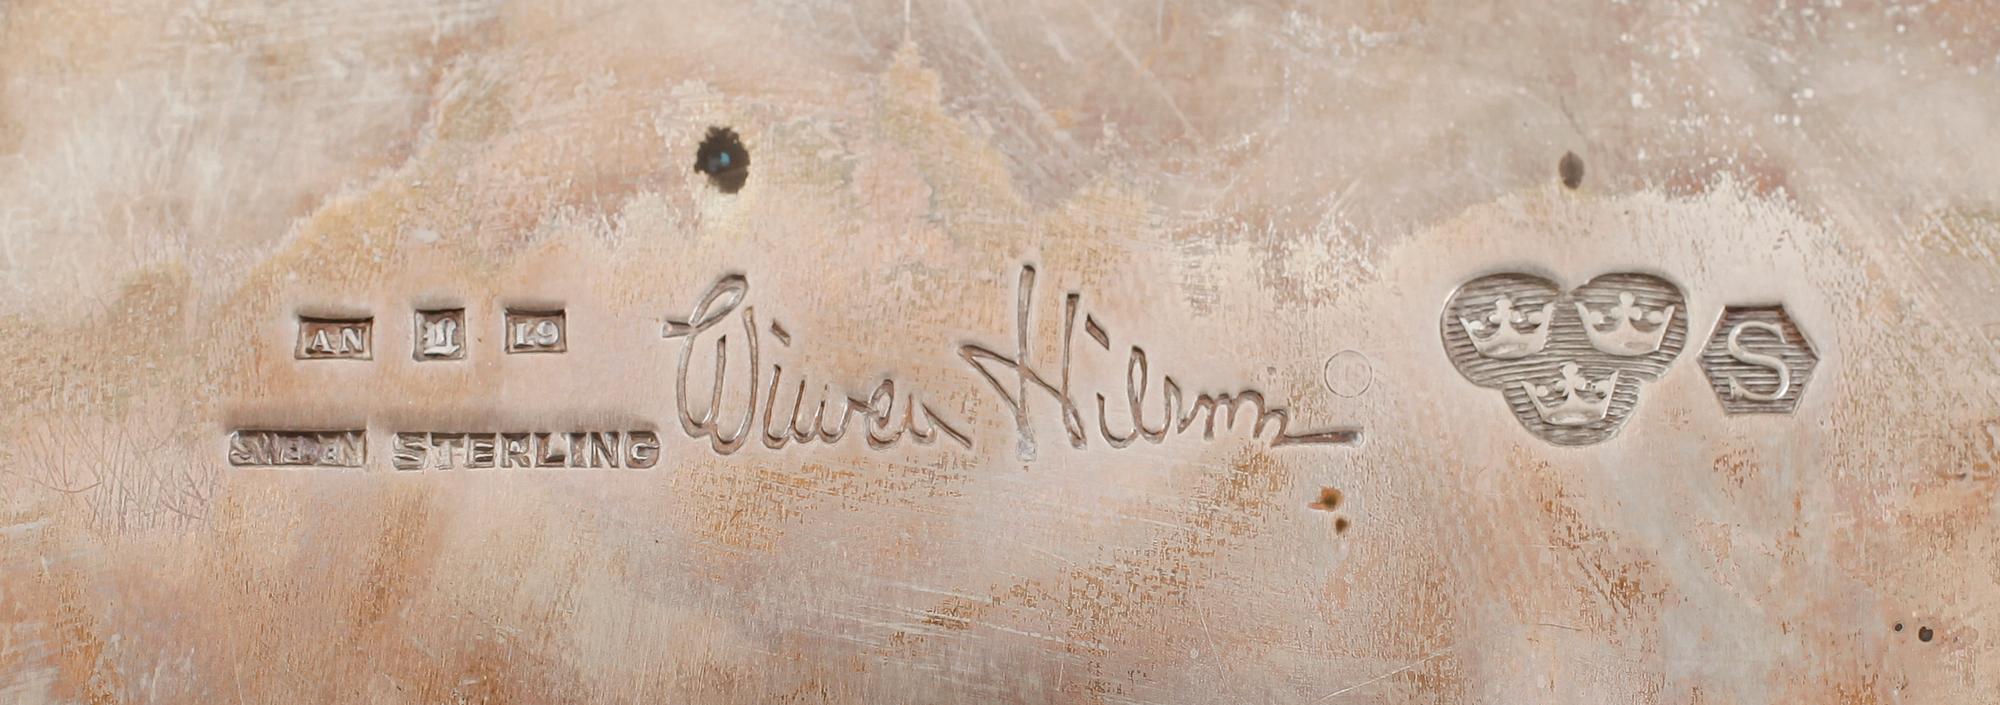 AN L9
Wiwen Nilsson
S
SWEDEN STERLING